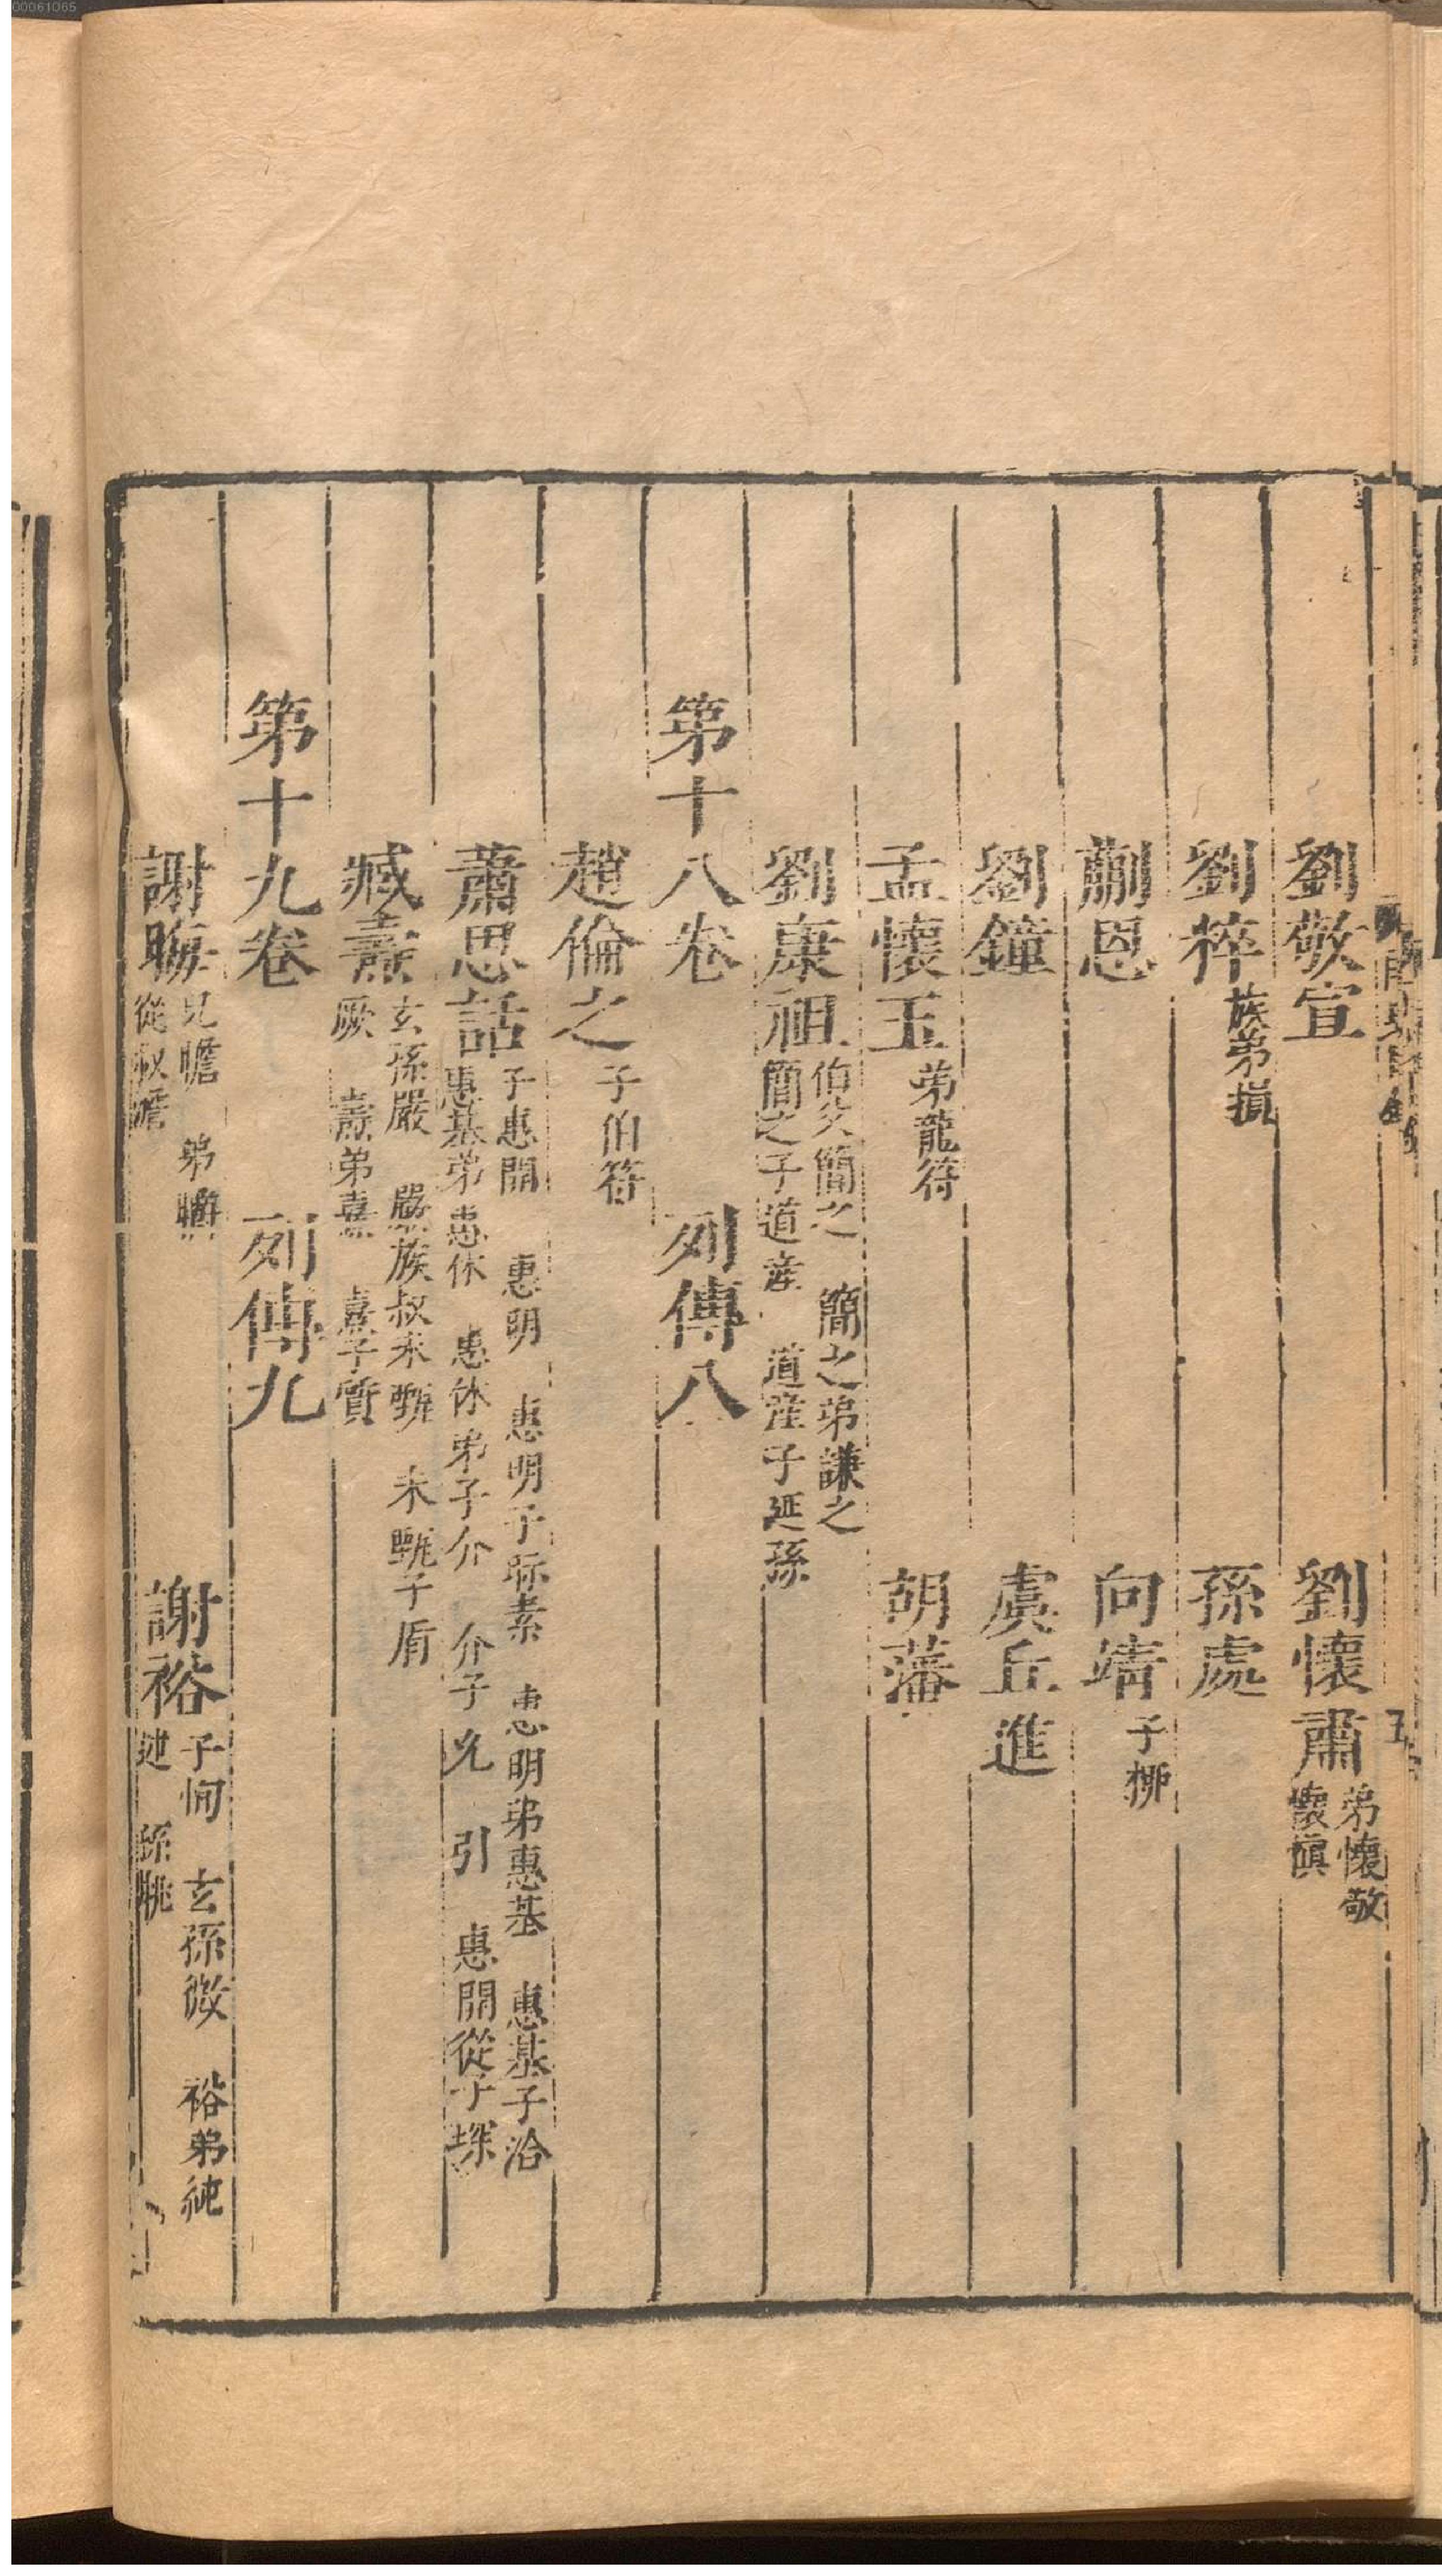 劉敬宣 劉懷肅 弟懷敬 懷慎
劉粹 族弟損 孫處
蒯恩 向靖 子栁
劉鐘 虞丘進
孟懷玉 弟龍符 胡藩
劉康祖 伯父簡之 簡之弟謙之 簡之子道產 道產子延孫
第十八卷 列傳八
趙倫之 子伯符
蕭思話 子惠開 惠明 惠明子眎素 惠明弟惠基 惠基子洽 惠基弟惠休 惠休弟子介 介子允 引 惠開從子琛
臧燾 玄孫嚴 嚴族叔未甄 未甄子盾 厥 燾弟熹 熹子質
第十九卷 列傳九
謝晦 兄瞻 弟㬭 從叔澹 謝裕 子恂 玄孫微 裕弟純 述 孫朓
00061065